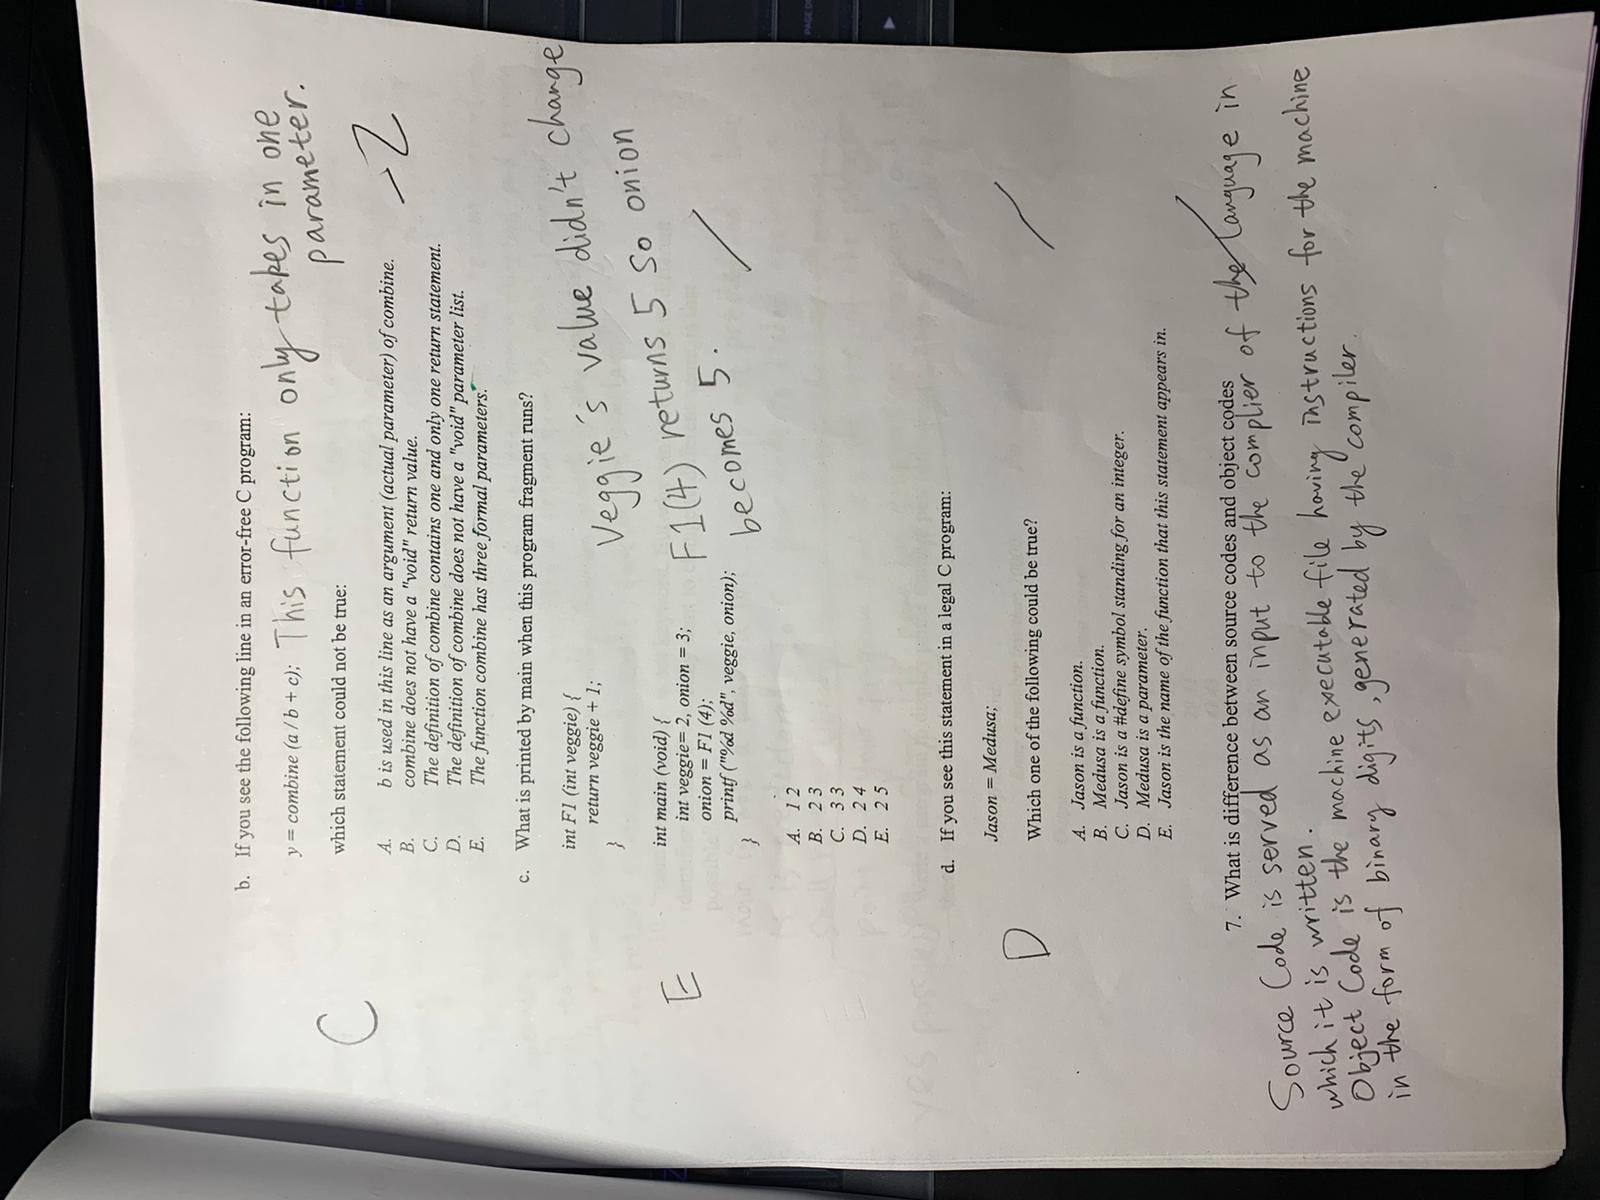 b. If you see the following line in an error-free C program:
y = combine (a / b + c); This function only takes in one
parameter.
which statement could not be true:
C
A. b is used in this line as an argument (actual parameter) of combine.
B. combine does not have a "void" return value.
C. The definition of combine contains one and only one return statement.
D. The definition of combine does not have a "void" parameter list.
E. The function combine has three formal parameters.
-2
c. What is printed by main when this program fragment runs?
int F1 (int veggie) {
return veggie + 1;
}
Veggie's value didn't change
int main (void) {
int veggie= 2, onion = 3;
onion = F1 (4);
printf ("%d %d", veggie, onion);
}
F1(4) returns 5 so onion
becomes 5.
E
A. 1 2
B. 2 3
C. 3 3
D. 2 4
E. 2 5
d. If you see this statement in a legal C program:
Jason = Medusa;
Which one of the following could be true?
D
A. Jason is a function.
B. Medusa is a function.
C. Jason is a #define symbol standing for an integer.
D. Medusa is a parameter.
E. Jason is the name of the function that this statement appears in.
7. What is difference between source codes and object codes
Source Code is served as an input to the complier of the language in
which it is written.
Object Code is the machine executable file having instructions for the machine
in the form of binary digits, generated by the compiler.